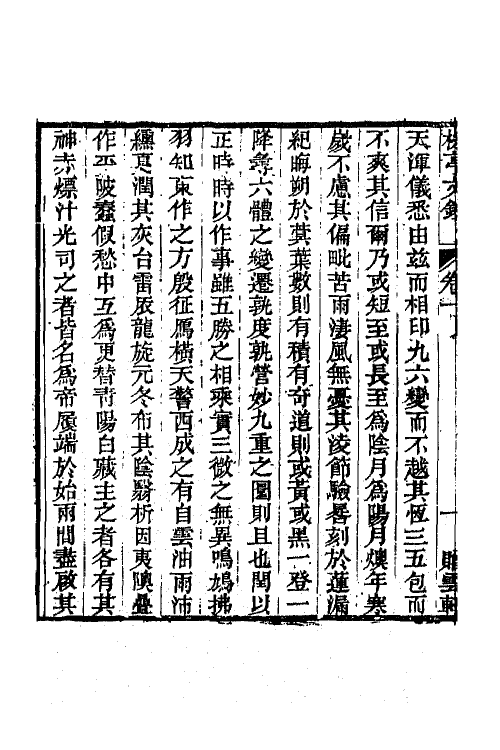 天渾儀悉由茲而相印九六變而不越其恆三五包而
不爽其信爾乃或短至或長至爲陰月爲陽月燠年寒
歲不慮其偏毗苦雨淒風無憂其淩節驗晷刻於蓮漏
紀晦朔於蓂葉數則有積有奇道則或黃或黑一登一
降尋六體之變遷孰度孰營妙九重之圜則且也閏以
正時時以作事雖五勝之相乘實三微之無異鳴鳩拂
羽知東作之方殷征鴈橫天警西成之有自雲油雨沛
纁夏潤其灰台雷厎龍旋元冬布其陰翳析因夷隩疊
作平陂蠢假愁中互爲更替靑陽白藏主之者各有其
神赤熛汁光司之者皆名爲帝履端於始兩間盡啟其